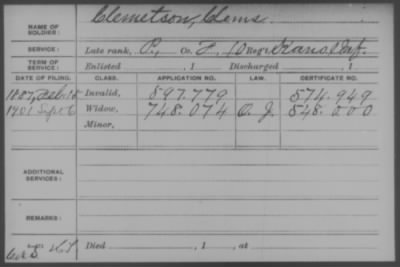 NAME OF SOLDIER: Clemetson, Clems
SERVICE: Late rank, P., Co. F, 10 Reg't Kans. Inf.
TERM OF SERVICE: Enlisted , 1 Discharged , 1
DATE OF FILING. CLASS. APPLICATION NO. LAW. CERTIFICATE NO.
1887, Feb 15 Invalid, 597.779 574.949
1901 Sept 6 Widow, 748.074 O. J. 548.000
Minor,
ADDITIONAL SERVICES:
REMARKS:
Died , 1 , at